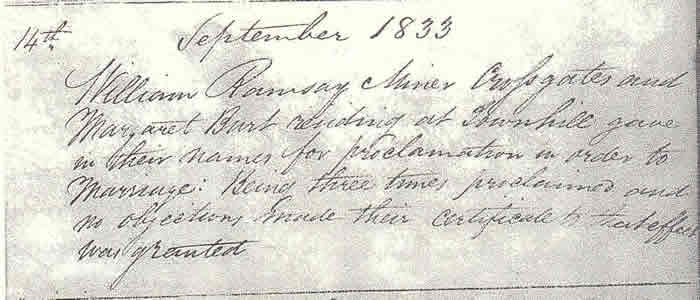 September 1833
14th
William Ramsay Miner Crossgates and
Margaret Burt residing at Townhill gave
in their names for proclamation in order to
Marriage: Being three times proclaimed and
no objections made their certificate to that effect
was granted